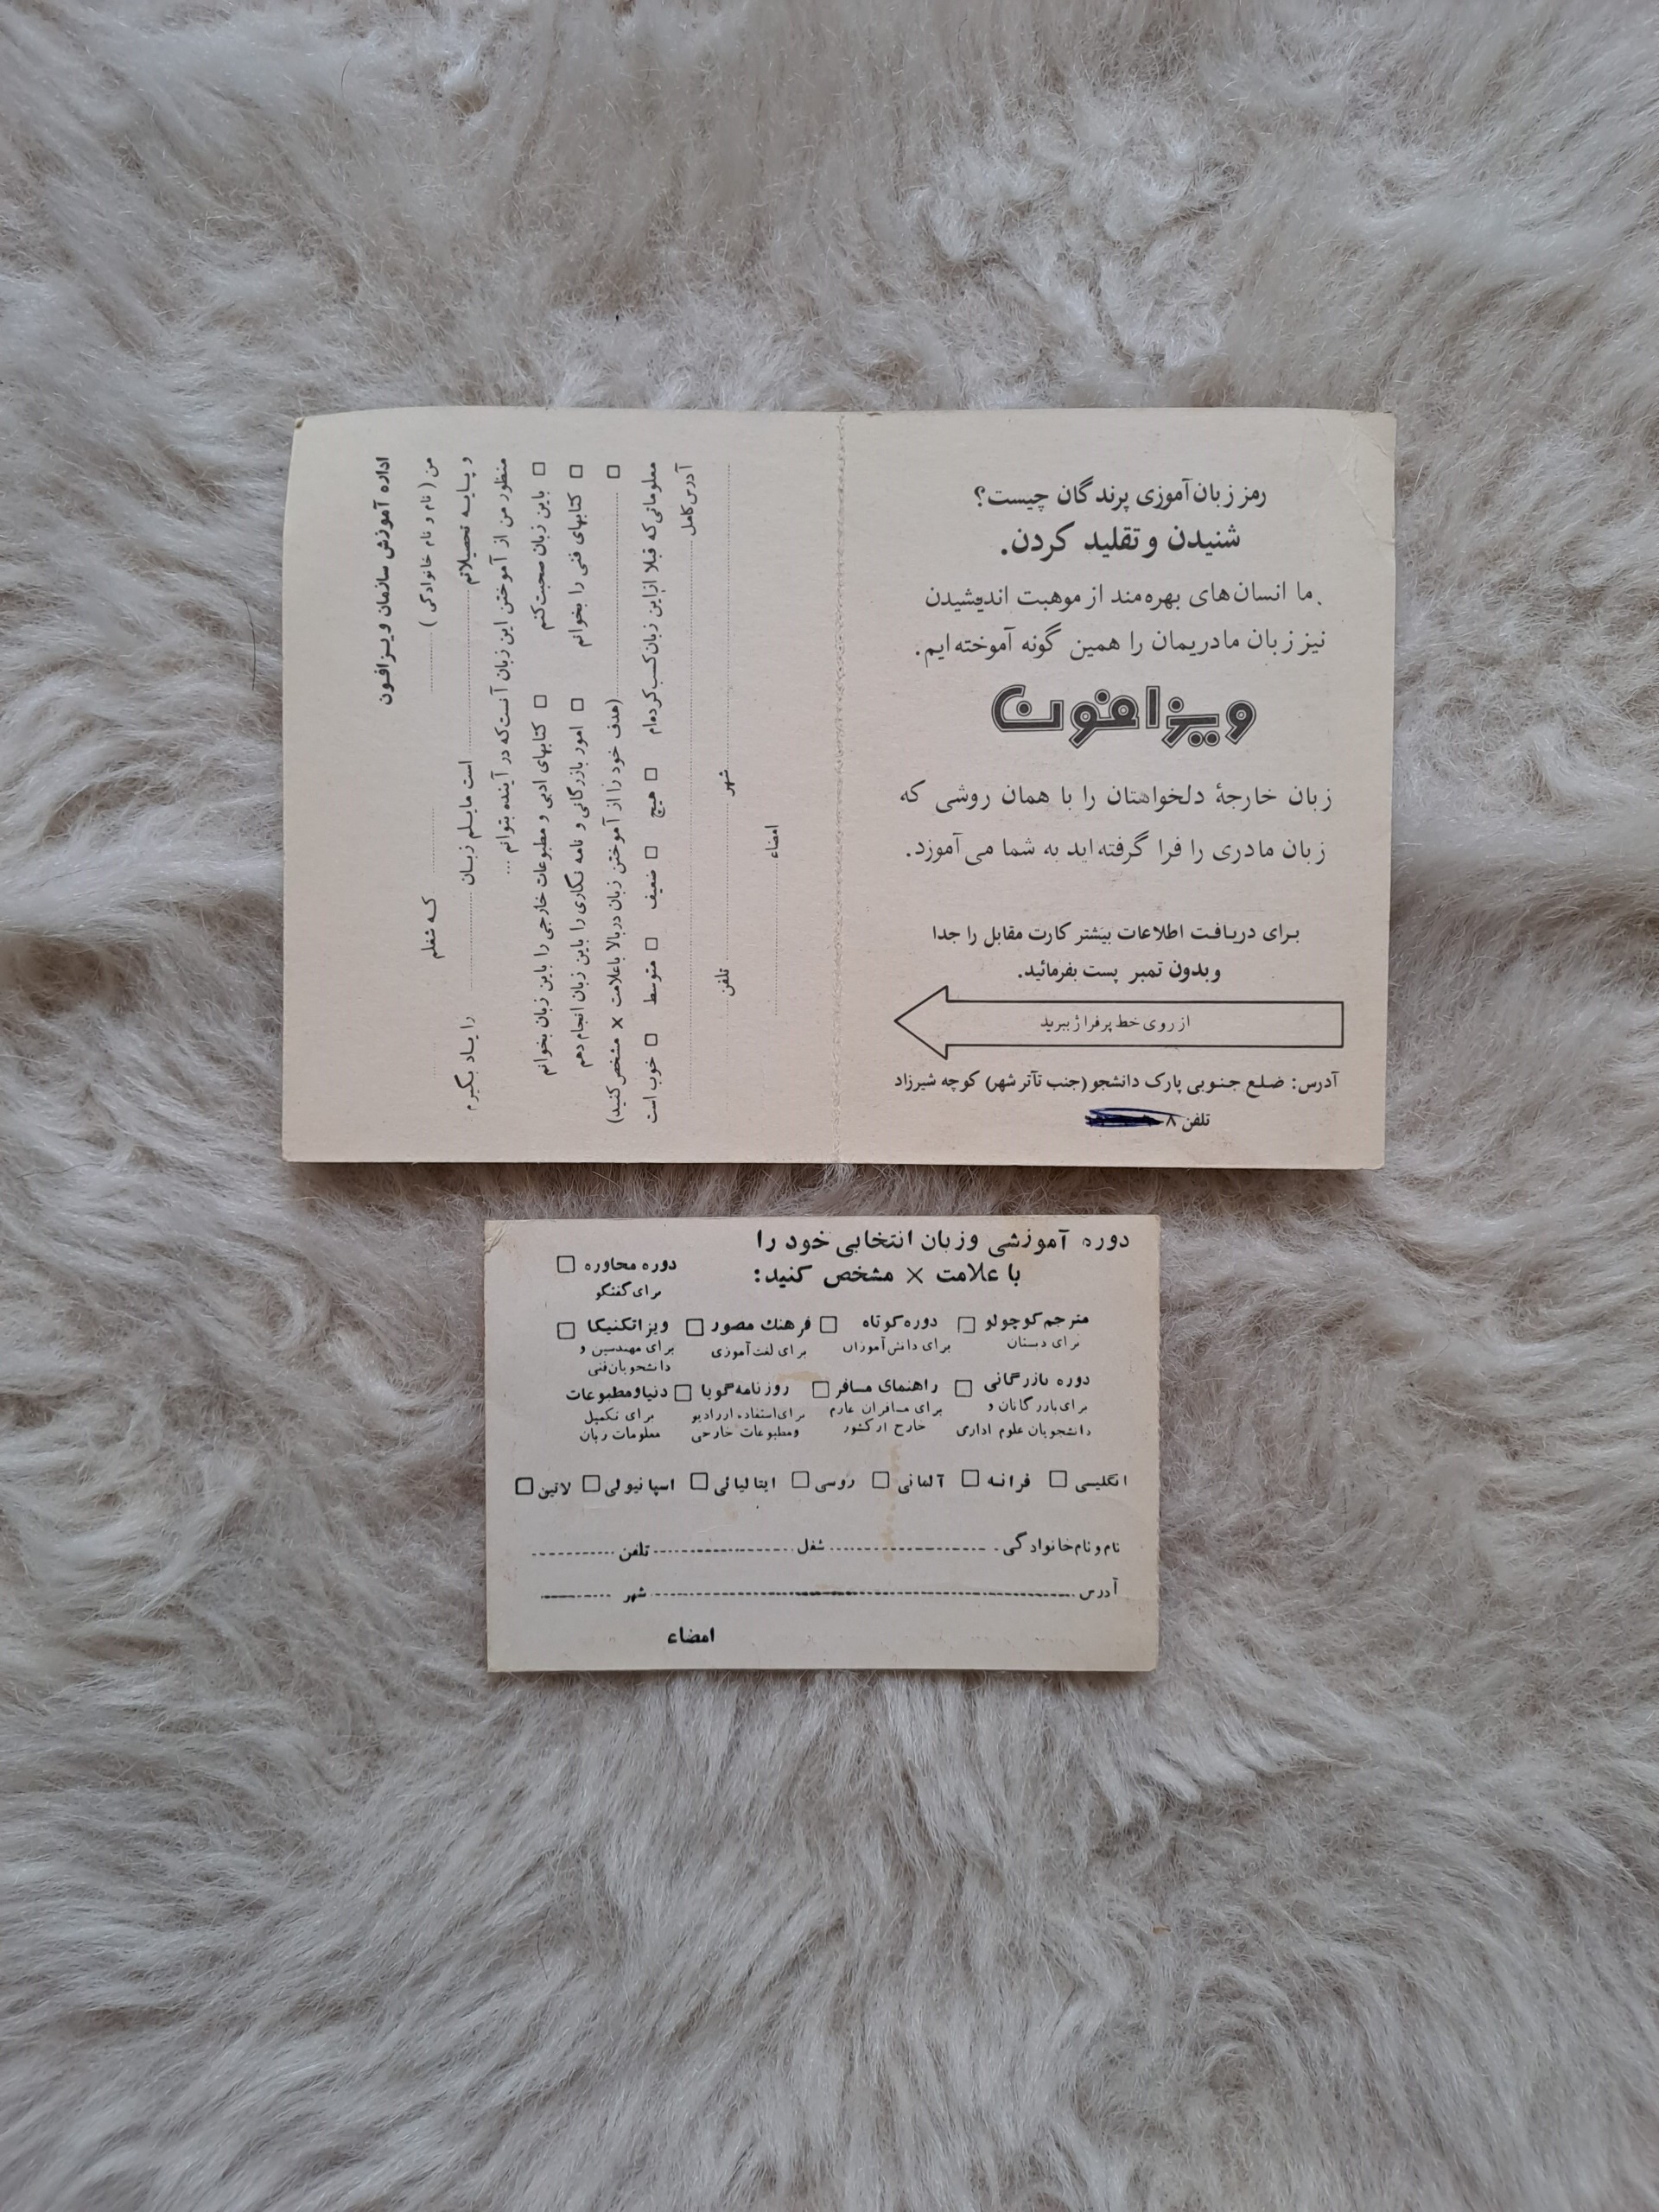 رمز زبان‌آموزی پرندگان چیست؟
شنیدن و تقلید کردن.
ما انسان‌های بهره‌مند از موهبت اندیشیدن
نیز زبان مادریمان را همین گونه آموخته‌ایم.
ویزافون
زبان خارجهٔ دلخواهتان را با همان روشی که
زبان مادری را فرا گرفته‌اید به شما می‌آموزد.
برای دریافت اطلاعات بیشتر کارت مقابل را جدا
و بدون تمبر پست بفرمائید.
از روی خط پرفراژ ببرید
آدرس: ضلع جنوبی پارک دانشجو (جنب تآتر شهر) کوچه شیرزاد
تلفن ۸
اداره آموزش سازمان ویزافون
من ( نام و نام خانوادگی ) که شغلم
و پایه تحصیلاتم است مایلم زبان را یاد بگیرم
منظور من از آموختن این زبان آنست که در آینده بتوانم ...
□ باین زبان صحبت کنم □ کتابهای ادبی و مطبوعات خارجی را باین زبان بخوانم
□ کتابهای فنی را بخوانم □ امور بازرگانی و نامه نگاری را باین زبان انجام دهم
□ (هدف خود را از آموختن زبان در بالا با علامت × مشخص کنید)
معلوماتی که قبلا از این زبان کسب کرده‌ام □ هیچ □ ضعیف □ متوسط □ خوب است
آدرس کامل
شهر تلفن
امضاء
دوره آموزشی و زبان انتخابی خود را
با علامت × مشخص کنید:
دوره محاوره □
برای گفتگو
مترجم کوچولو □ دوره کوتاه □ فرهنك مصور □ ویزاتکنیکا □
برای دبستان برای دانش‌آموزان برای لغت‌آموزی برای مهندسین و
دانشجویان فنی
دوره بازرگانی □ راهنمای مسافر □ روزنامه گویا □ دنیا و مطبوعات
برای بازرگانان و برای مسافران عازم برای استفاده از رادیو برای تکمیل
دانشجویان علوم اداری خارج از کشور و مطبوعات خارجی معلومات زبان
انگلیسی □ فرانسه □ آلمانی □ روسی □ ایتالیائی □ اسپانیولی □ لاتین □
نام و نام خانوادگی شغل تلفن
آدرس شهر
امضاء